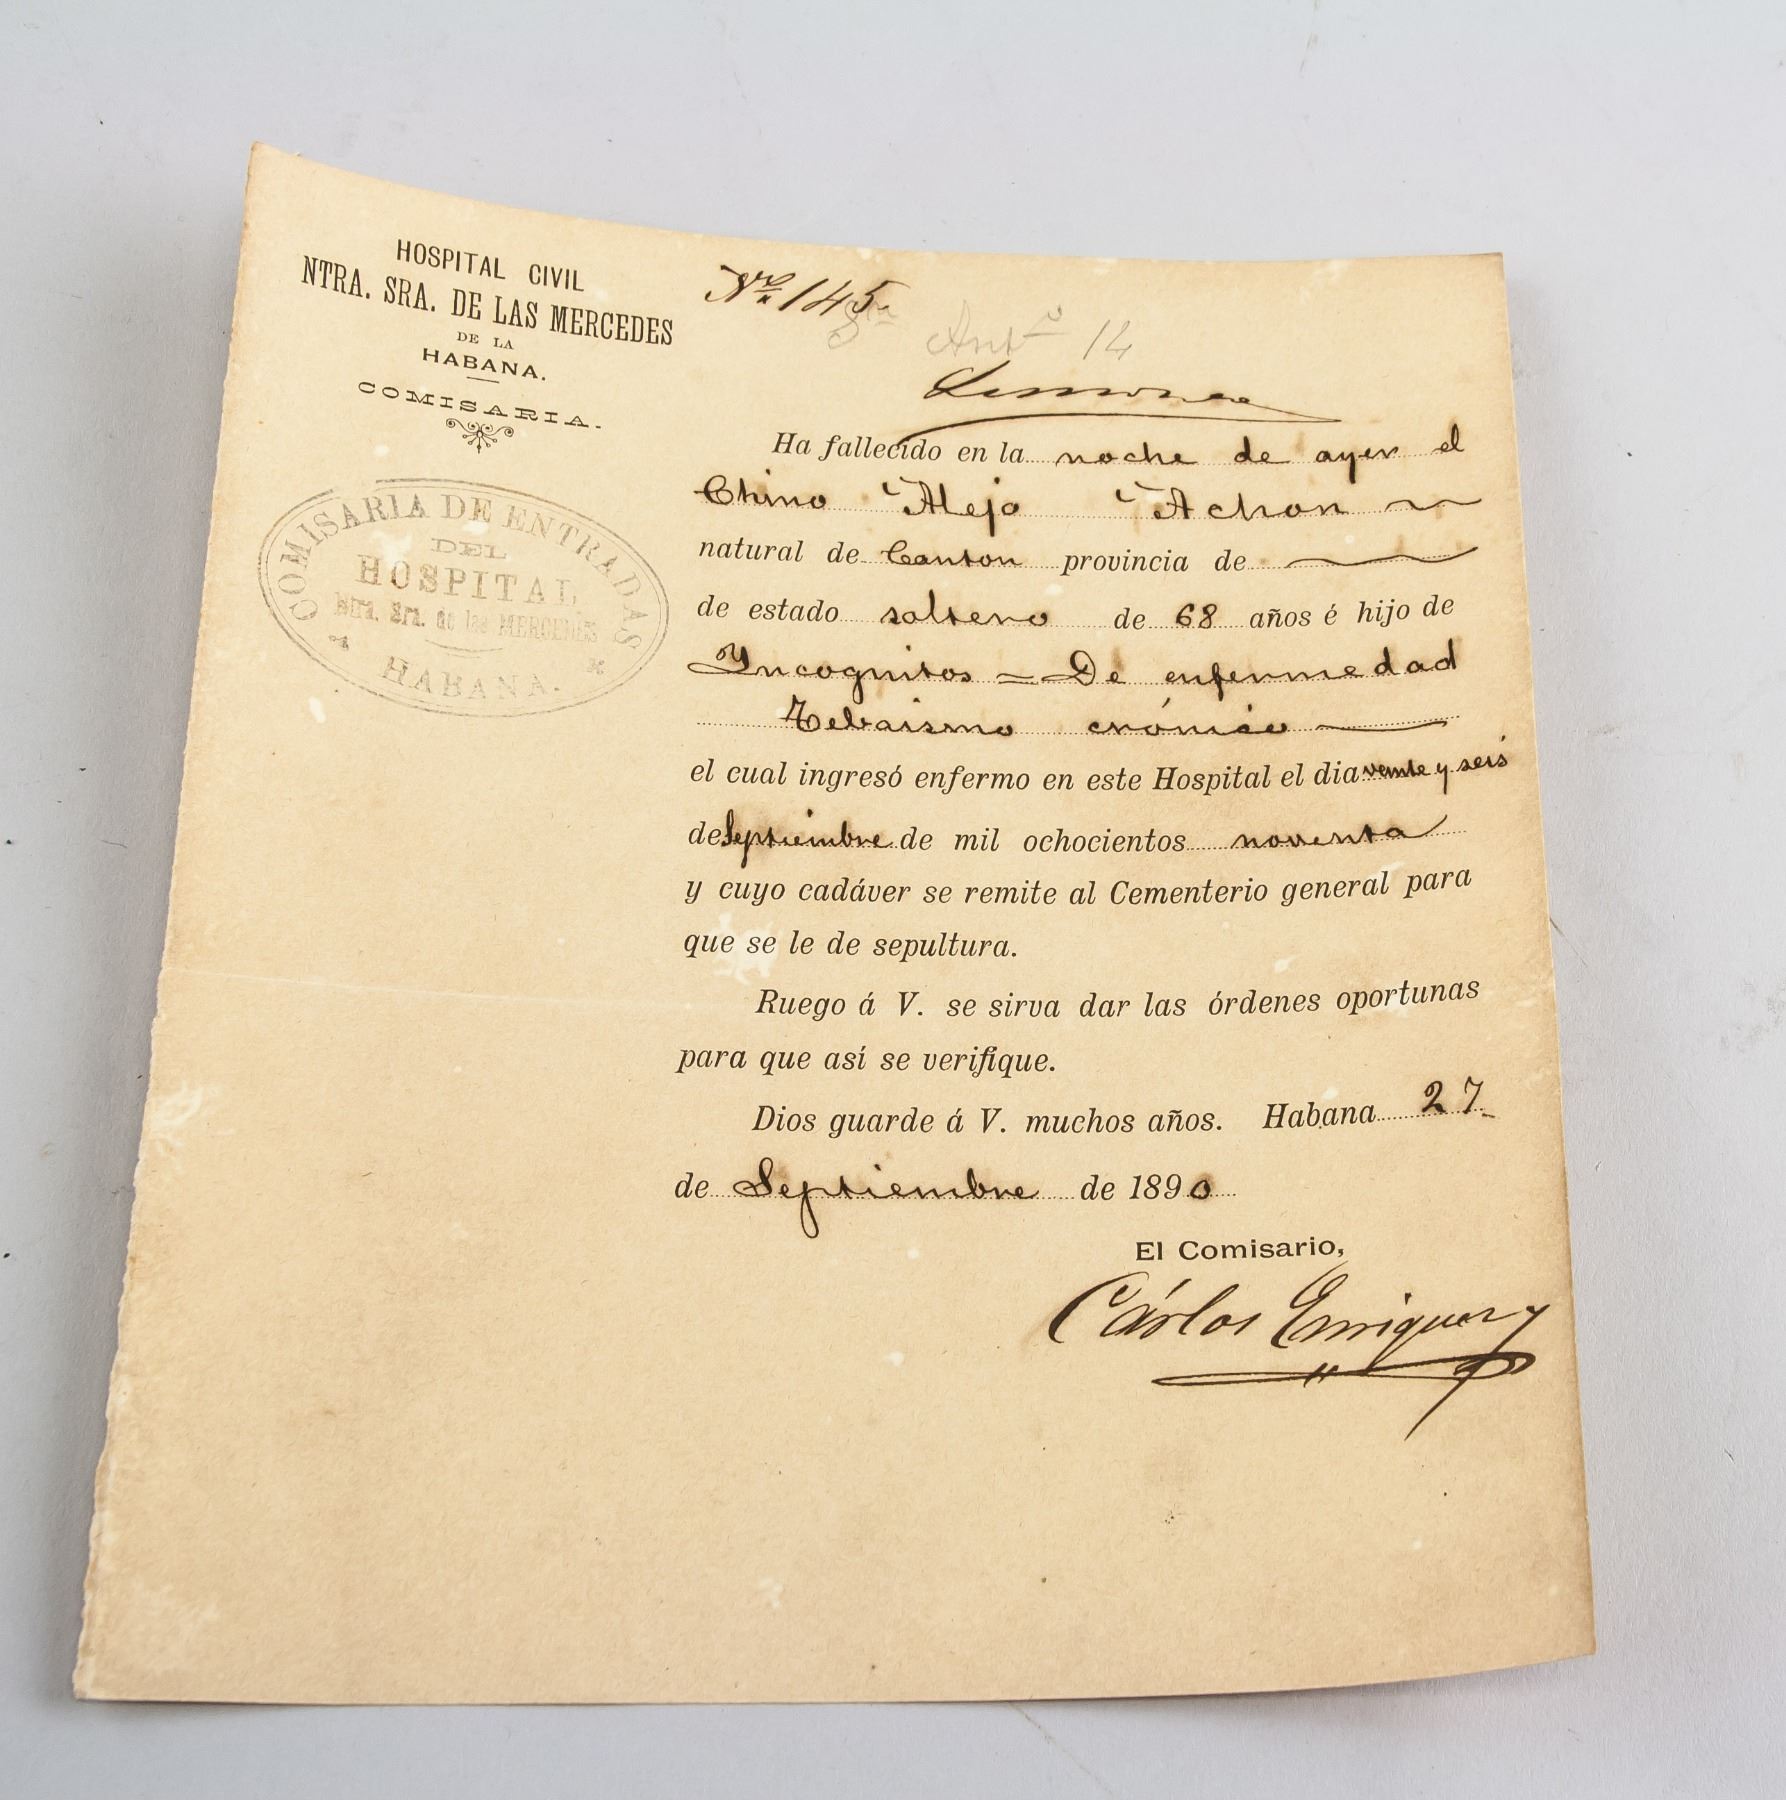 HOSPITAL CIVIL
NTRA. SRA. DE LAS MERCEDES
DE LA
HABANA.
COMISARIA.
COMISARIA DE ENTRADAS
DEL
HOSPITAL
Ntra. Sra. de las MERCEDES
HABANA.
Nro. 145
14
Ha fallecido en la noche de ayer el
Chino Alejo Achon
natural de Canton provincia de
de estado soltero de 68 años é hijo de
Yncognitos = De enfermedad
Tebaismo crónico
el cual ingresó enfermo en este Hospital el dia veinte y seis
de Septiembre de mil ochocientos noventa
y cuyo cadáver se remite al Cementerio general para
que se le de sepultura.
Ruego á V. se sirva dar las órdenes oportunas
para que así se verifique.
Dios guarde á V. muchos años. Habana 27
de Septiembre de 1890
El Comisario,
Cárlos Enriquez